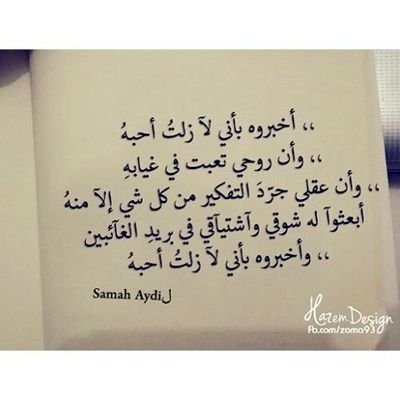 ،، أخبروه بأني لآ زلتُ أحبهُ
،، وأن روحي تعبت في غيابهِ
،، وأن عقلي جرّدَ التفكير من كل شي إلآ منهُ
أبعثوآ له شوقي وآشتيآقي في بريدِ الغآئبين
،، وأخبروه بأني لآ زلتُ أحبهُ
Samah Aydiل
Hazem Design
Fb.com/zoma93